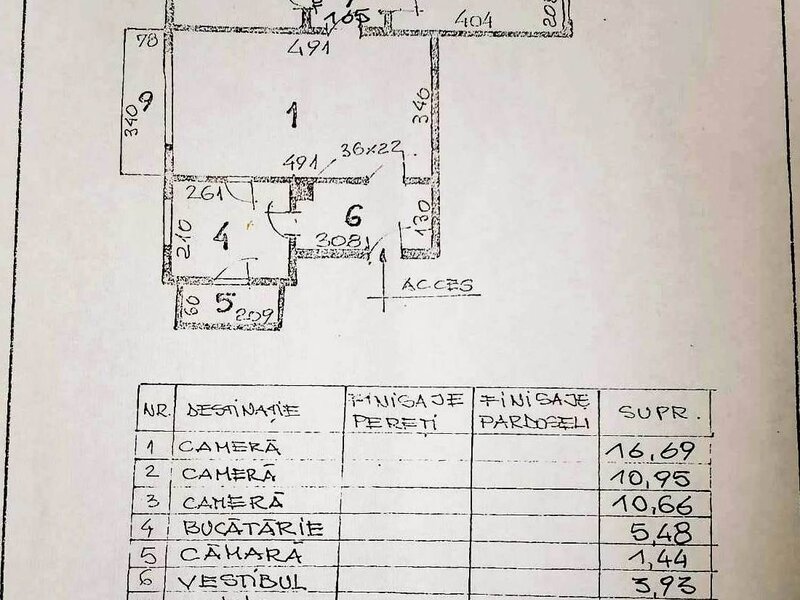 105
404
208
78
491
9
340
1
346
491
36x22
261
6
130
210
4
308
ACCES
60
5
209
NR. DESTINAȚIE FINISAJE PEREȚI FINISAJE PARDOSELI SUPR.
1 CAMERĂ 16,69
2 CAMERĂ 10,95
3 CAMERĂ 10,66
4 BUCĂTĂRIE 5,48
5 CĂMARĂ 1,44
6 VESTIBUL 3,93